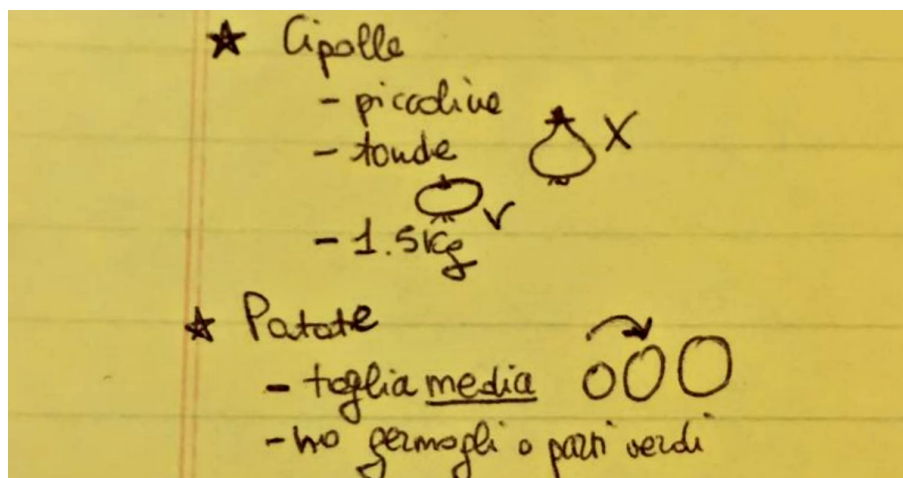 ★ Cipolle
- piccoline
- tonde
- 1.5kg
★ Patate
- taglia media
- no germogli o parti verdi